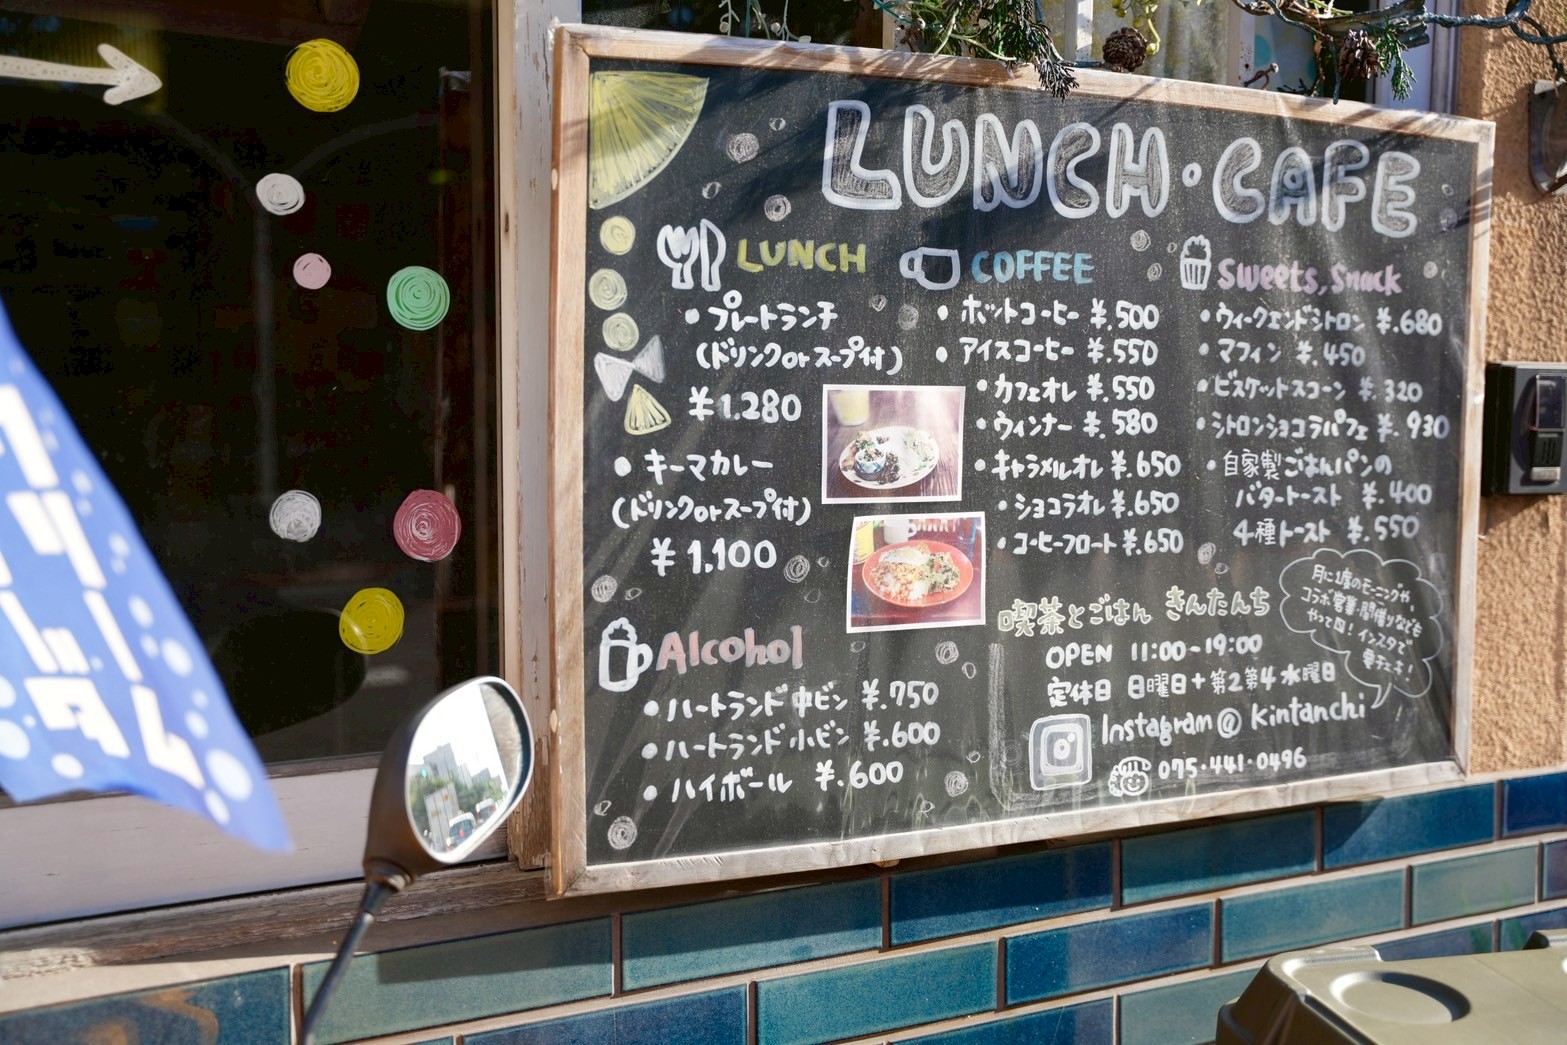 LUNCH・CAFE
LUNCH
・プレートランチ
(ドリンク or スープ付)
¥1.280
・キーマカレー
(ドリンク or スープ付)
¥1.100
Alcohol
・ハートランド 中ビン ¥.750
・ハートランド 小ビン ¥.600
・ハイボール ¥.600
COFFEE
・ホットコーヒー ¥.500
・アイスコーヒー ¥.550
・カフェオレ ¥.550
・ウィンナー ¥.580
・キャラメルオレ ¥.650
・ショコラオレ ¥.650
・コーヒーフロート ¥.650
Sweets, Snack
・ウィークエンドシトロン ¥.680
・マフィン ¥.450
・ビスケットスコーン ¥.320
・シトロンショコラパフェ ¥.930
・自家製ごはんパンの
バタートースト ¥.400
4種トースト ¥.550
月に1度のモーニングや、
コラボ営業・開催リなども
やって〼!インスタで
要チェキ!
喫茶とごはん きんたんち
OPEN 11:00-19:00
定休日 日曜日+第2第4水曜日
Instagram@kintanchi
075-441-0496